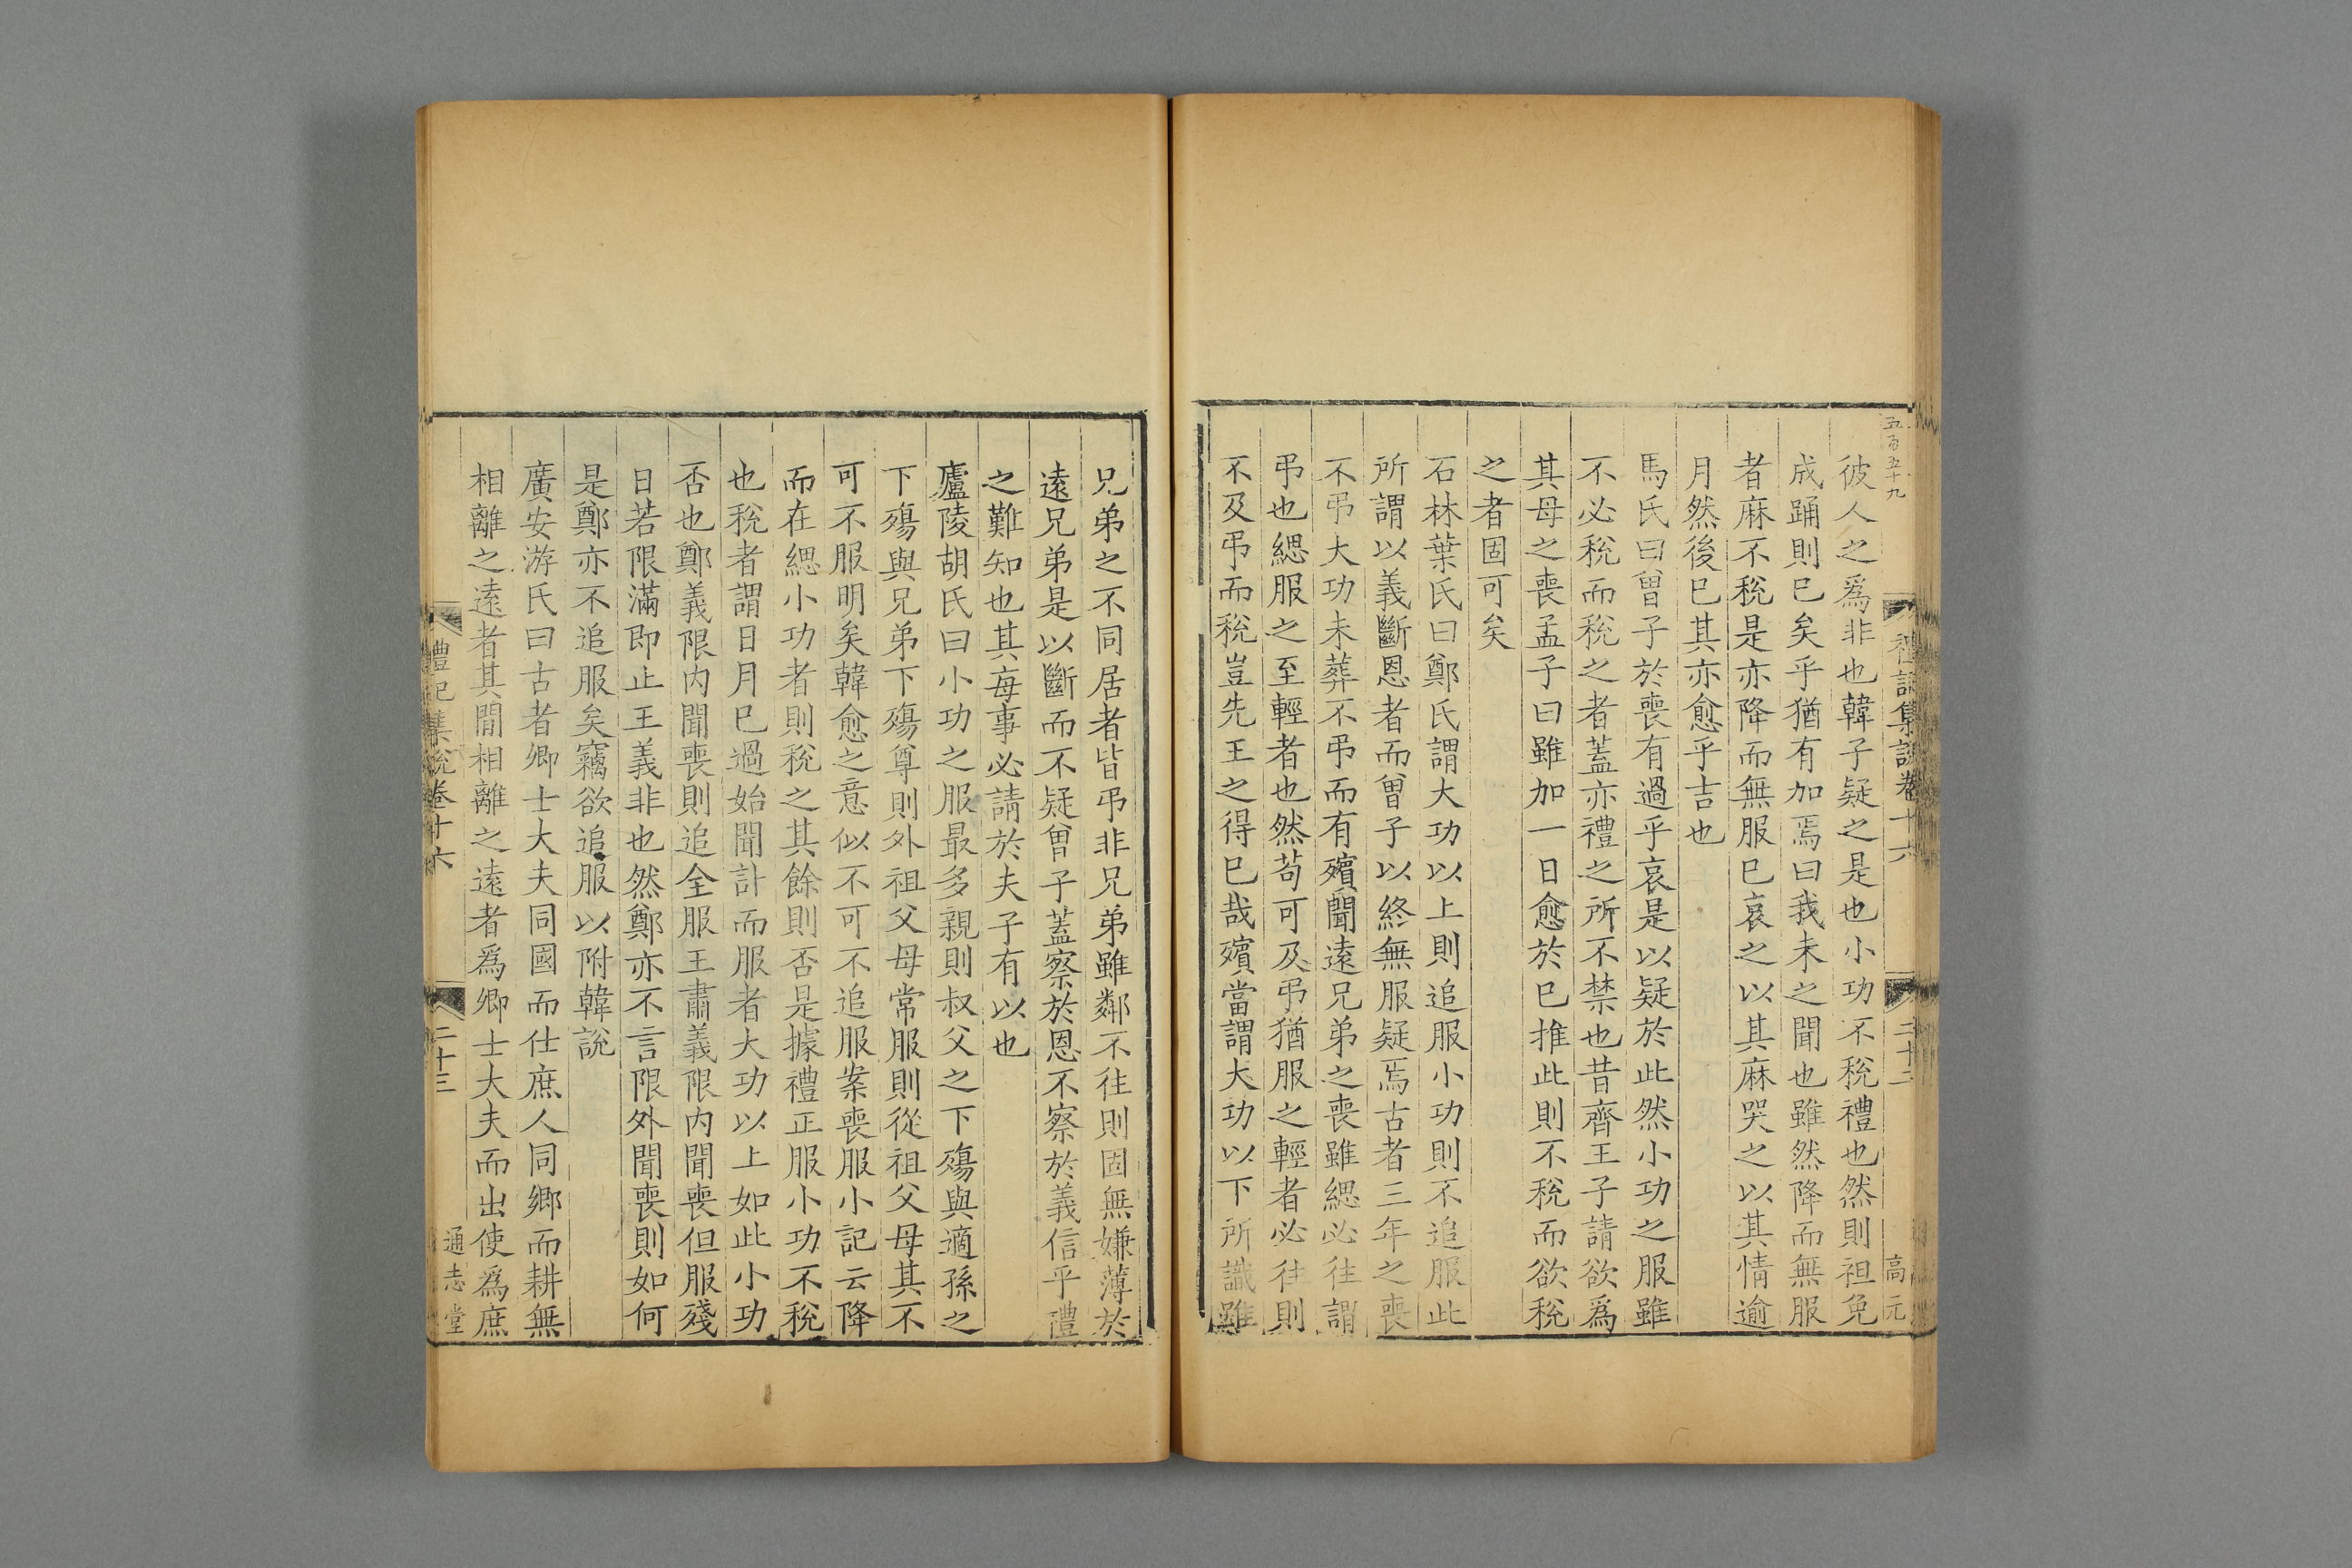 五百五十九
禮記集說卷十六
二十二
高元
彼人之爲非也韓子疑之是也小功不稅禮也然則袒免
成踊則巳矣乎猶有加焉曰我未之聞也雖然降而無服
者麻不稅是亦降而無服巳哀之以其麻哭之以其情逾
月然後巳其亦愈乎吉也
馬氏曰曾子於喪有過乎哀是以疑於此然小功之服雖
不必稅而稅之者蓋亦禮之所不禁也昔齊王子請欲爲
其母之喪孟子曰雖加一日愈於巳推此則不稅而欲稅
之者固可矣
石林葉氏曰鄭氏謂大功以上則追服小功則不追服此
所謂以義斷恩者而曾子以終無服疑焉古者三年之喪
不弔大功未葬不弔而有殯聞遠兄弟之喪雖緦必往謂
弔也緦服之至輕者也然苟可及弔猶服之輕者必往則
不及弔而稅豈先王之得巳哉殯當謂大功以下所識雖
兄弟之不同居者皆弔非兄弟雖鄰不往則固無嫌薄於
遠兄弟是以斷而不疑曾子蓋察於恩不察於義信乎禮
之難知也其每事必請於夫子有以也
廬陵胡氏曰小功之服最多親則叔父之下殤與適孫之
下殤與兄弟下殤尊則外祖父母常服則從祖父母其不
可不服明矣韓愈之意似不可不追服案喪服小記云降
而在緦小功者則稅之其餘則否是據禮正服小功不稅
也稅者謂日月巳過始聞計而服者大功以上如此小功
否也鄭義限內聞喪則追全服王肅義限內聞喪但服殘
日若限滿即止王義非也然鄭亦不言限外聞喪則如何
是鄭亦不追服矣竊欲追服以附韓說
廣安游氏曰古者卿士大夫同國而仕庶人同鄉而耕無
相離之遠者其間相離之遠者爲卿士大夫而出使爲庶
禮記集說卷十六
二十三
通志堂